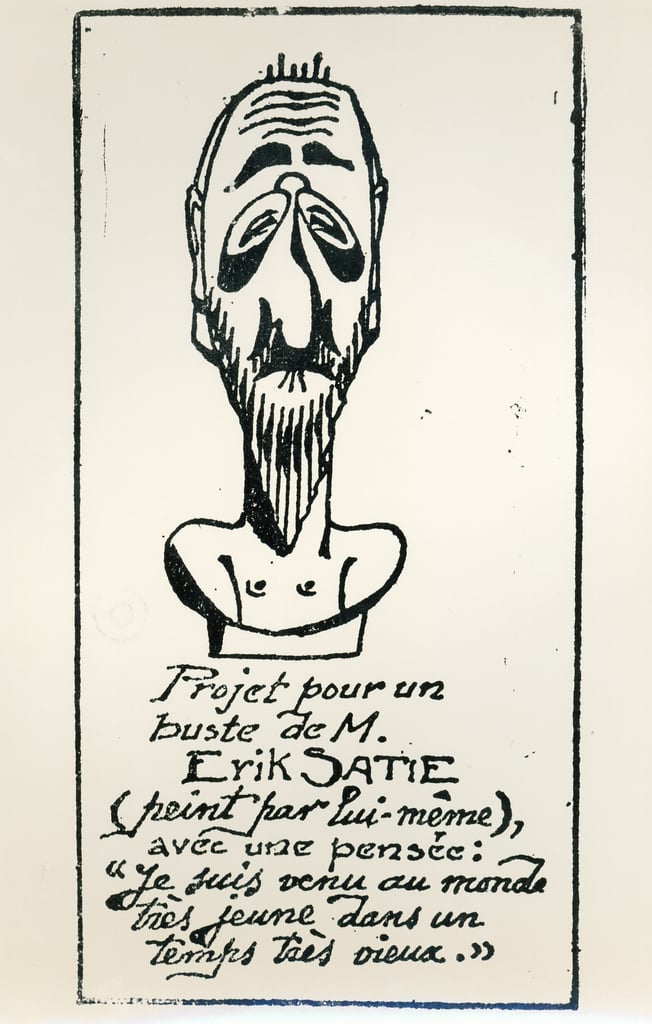 Projet pour un
buste de M.
Erik SATIE
(peint par lui-même),
avec une pensée:
“Je suis venu au monde
très jeune dans un
temps très vieux.»